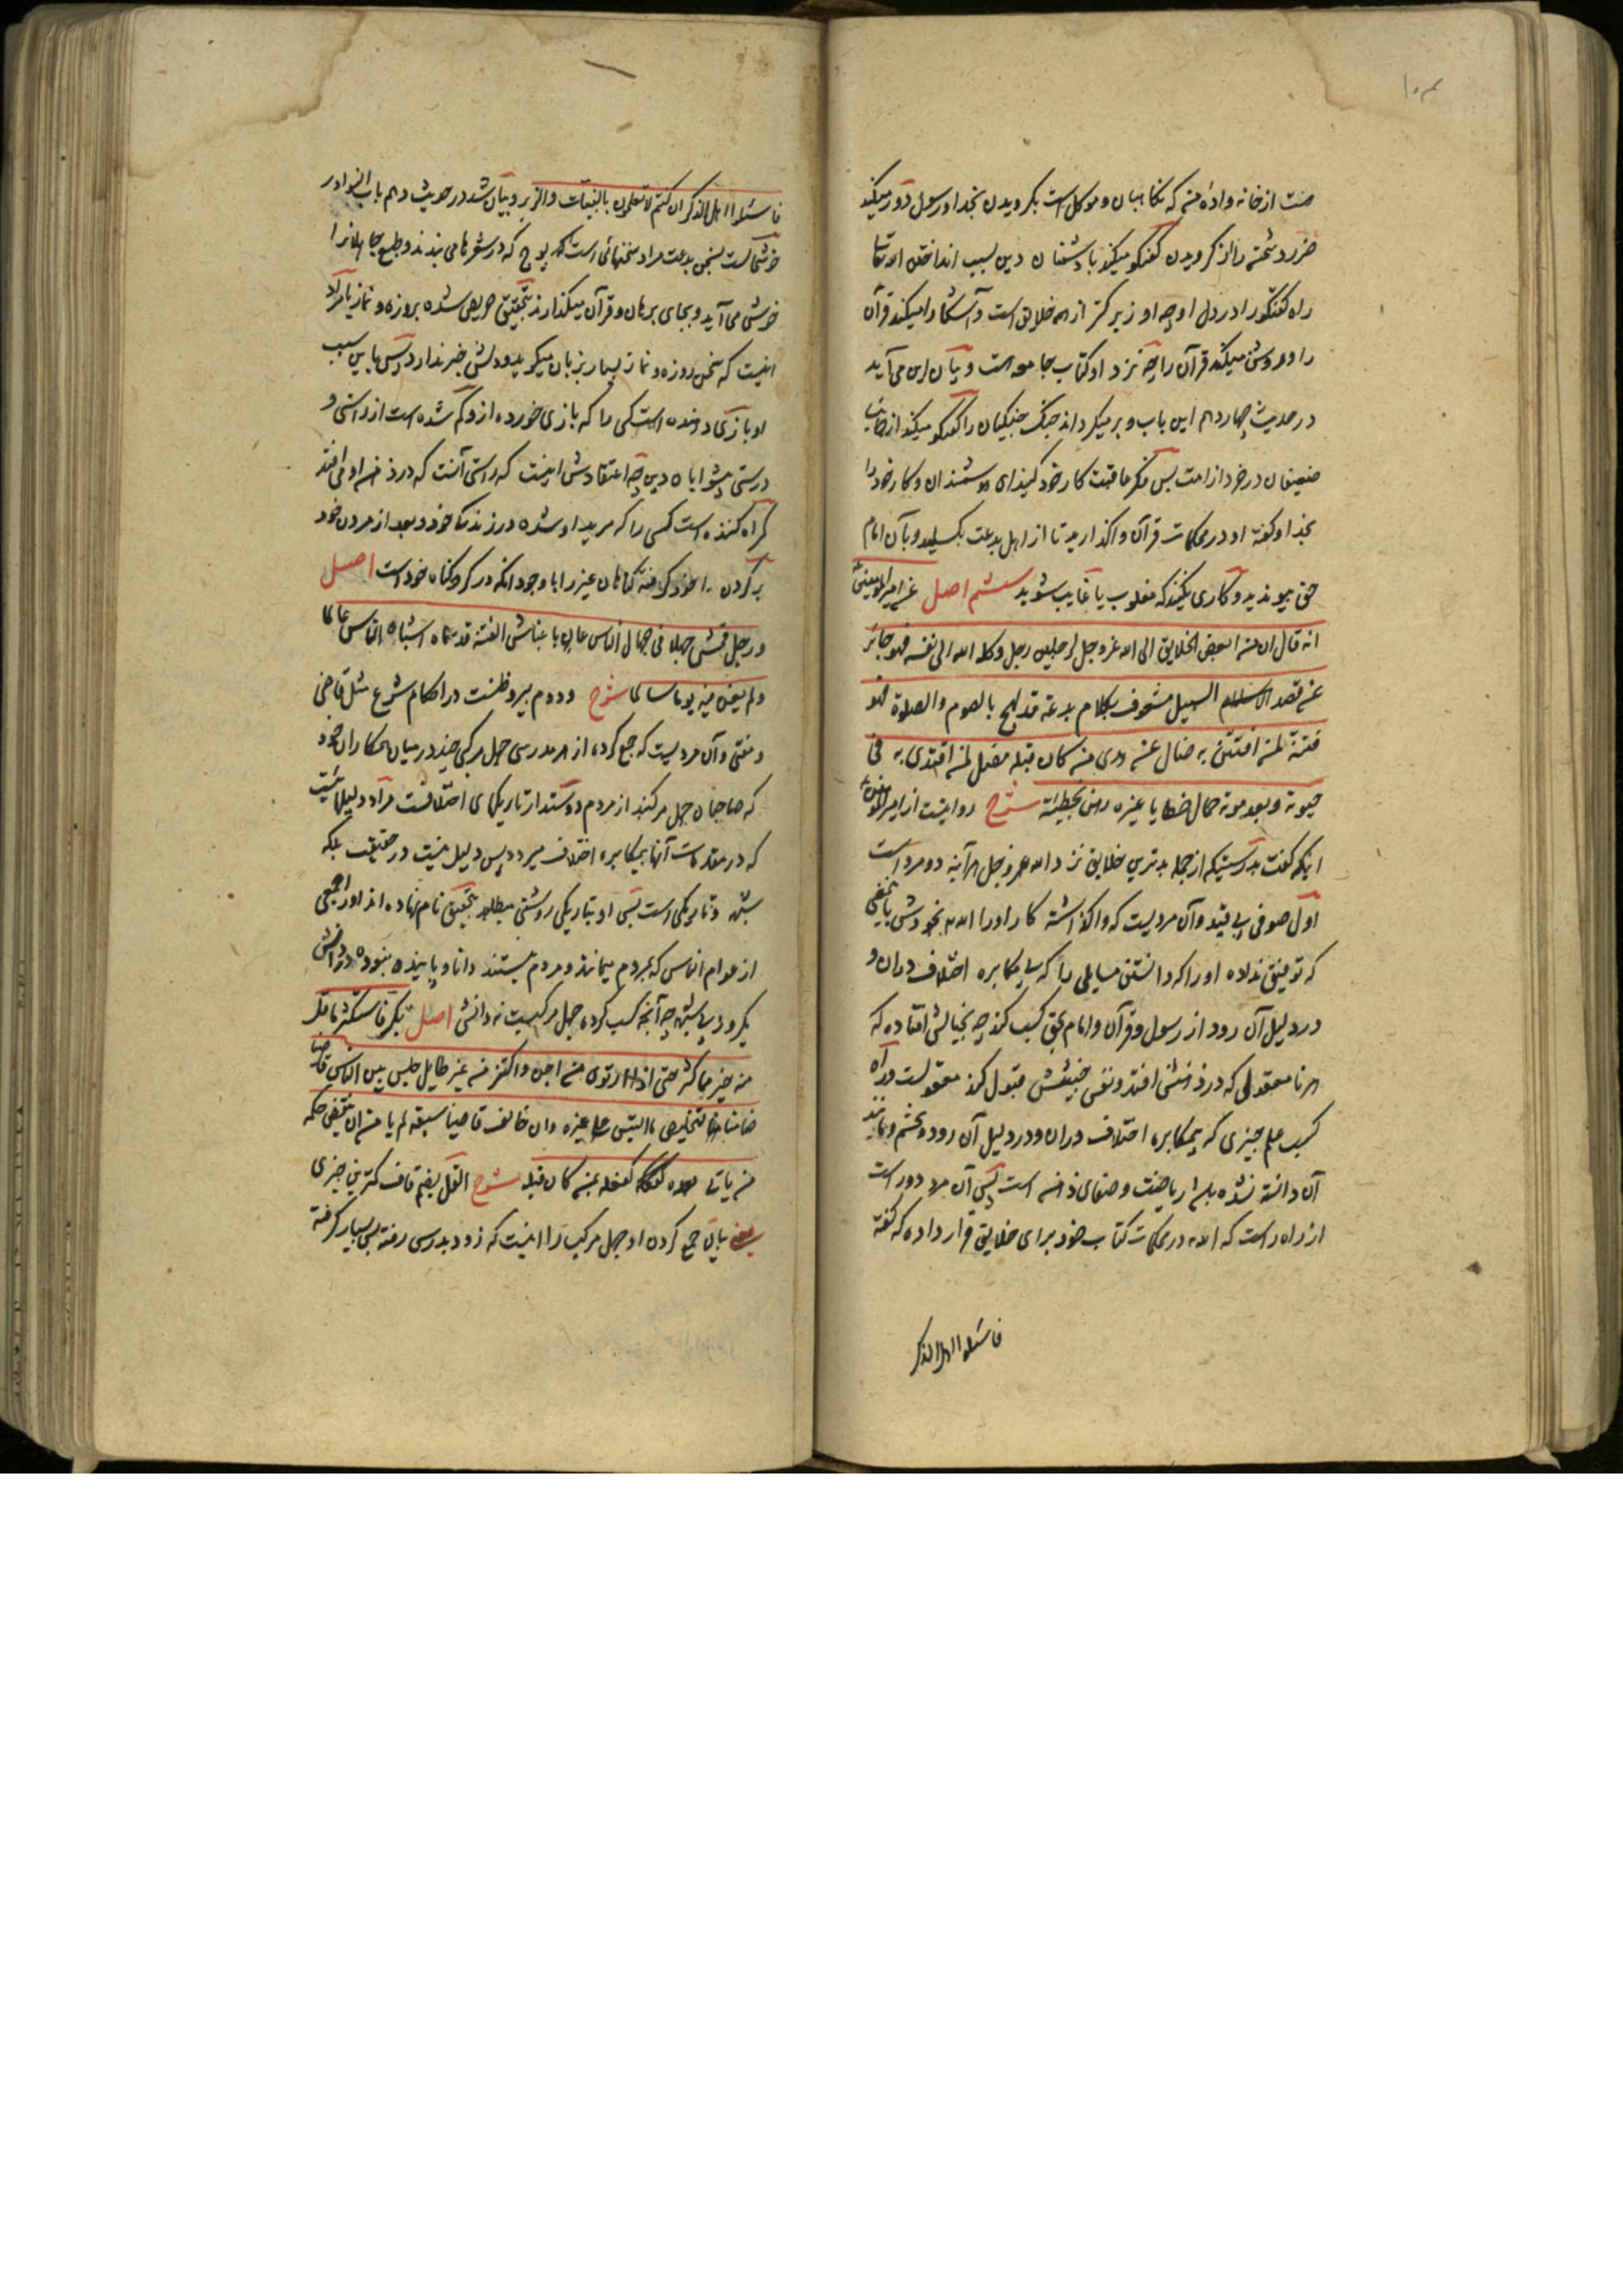 ۱۰۳
منت از خانه واده منه که نکاهبان و موکل است بکرویدن بخدا و رسول دور میکند
ضرر دشمنه را از کرویدن گفتگو میکند با دشمنان دین بسبب انداختن الله تعا
راه گفتگو را در دل او چه او زیر کتر از همه خلایق است و آشکارا میکند قرآن
را و روشن میکند قرآن را چه نزد او کتاب جامعه است و بیان این می آید
در حدیث چهاردهم این باب و بر میکرداند جنک جنکیان را گفتگو میکند از جانب
ضعیفان در خرد از امت پس فکر عاقبت کار خود کنید ای هوشمندان و کار خود را
بخدا و گفته او در محکمات قرآن واگذارید تا از اهل بدعت بکسلید و بآن امام
حق پیوندید و کاری نکنید که مغلوب یا غایب شوید ششم اصل عن امیر المؤمنین ع
انه قال ان من ابغض الخلایق الی الله عز و جل لرجلین رجل وکله الله الی نفسه فهو جائر
عن قصد السبیل مشعوف بکلام بدعة قد لهج بالصوم والصلوة فهو
فتنة لمن افتتن به ضال عن هدی من کان قبله مضل لمن اقتدی به فی
حیوته و بعد موته حمال خطایا غیره رهن بخطیئته شرح روایتست از امیر المؤمنین ع
اینکه گفت بدرستیکه از جمله بدترین خلایق نزد الله عز و جل هرآینه دو مرد است
اول صوفی بی قید و آن مردیست که واگذاشته کار او را الله بخودش باینمعنی
که توفیق نداده او را که دانستن مسایلی را که بی مکابره اختلاف در ان و
در دلیل آن رود از رسول و قرآن و امام بحق کسب کند چه بخیالش افتاده که
هر نامعقولی که در ذهنش افتد و نفس خبیثش قبول کند معقولست و راه
کسب علم چیزی که بمکابره اختلاف در ان و در دلیل آن رود و بچشم و مانند
آن دانسته نشده باشد ریاضت و صفای ذهنه است پس آن مرد دور است
از راه راست که الله در محکمات کتاب خود برای خلایق قرار داده که گفته
فاسئلوا اهل الذکر
فاسئلوا اهل الذکر ان کنتم لا تعلمون بالبینات والزبر و بیان شد در حدیث دهم باب النوادر
خوشحالست بسخن بدعت مراد سخنهائی است پوچ که در شعرها می بندند و طبع جاهلانرا
خوش می آید و بجای برهان و قرآن میگذارند بتحقیق حریص شده بروزه و نماز یا مراد
اینست که سخن روزه و نماز بسیار بزبان میگوید و دلش خبر ندارد پس باین سبب
او بازی دهنده است کسی را که بازی خورده از و گم شده است از راستی و
درستی پیشوایان دین چه اعتقادش اینست که راستی آنست که در ذهن او می افتد
گمراه کننده است کسی را که مرید او شده در زندگی خود و بعد از مردن خود
بر گردن خود گرفته گناهان غیر را با وجود آنکه در گرو گناه خود است اصل
و رجل قمش جهلا فی جهال الناس عان باغباش الفتنة قد سماه اشباه الناس عالما
و لم یغن فیه یوما سالما شرح و دوم پیرو ظنست در احکام شرع مثل قاضی
و مفتی و آن مردیست که جمع کرده از هر مدرسی جهل مرکبی چند در میان همکاران خود
که صاحبان جهل مرکبند از مردم دوستدار تاریکهای اختلافست مراد دلیلهاست
که در مقدمات آنها بمکابره اختلاف میرود پس دلیل نیست در حقیقت بلکه
شبهه و تاریکی است پس او بتاریکی روشنی میطلبد بتحقیق نام نهاده اند او را جمعی
از عوام الناس که بمردم میمانند و مردم نیستند دانا و پاینده نبوده در دانش
یکروز بی شبهه چه آنچه کسب کرده جهل مرکبست نه دانش اصل بکر فاستکثر ما قل
منه خیر مما کثر حتی اذا ارتوی من اجن و اکتنز من غیر طایل جلس بین الناس قاضیا
ضامنا لتخلیص ما التبس علی غیره و ان خالف قاضیا سبقه لم یامن ان ینقض حکمه
من یاتی بعده کفعله بمن کان قبله شرح القل بضم قاف کمترین چیزی
یعنی بیان جمع کردن او جهل مرکب را اینست که زود بدرسی رفته پس بسیار گرفته